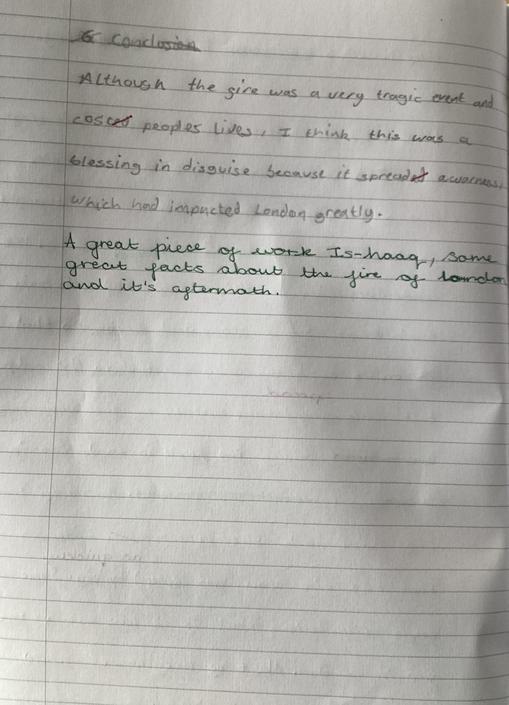 Conclusion
Although the fire was a very tragic event and
cost peoples lives, I think this was a
blessing in disguise because it spread awarness,
which had impacted London greatly.
A great piece of work Is-haaq, some
great facts about the fire of London
and it's aftermath.